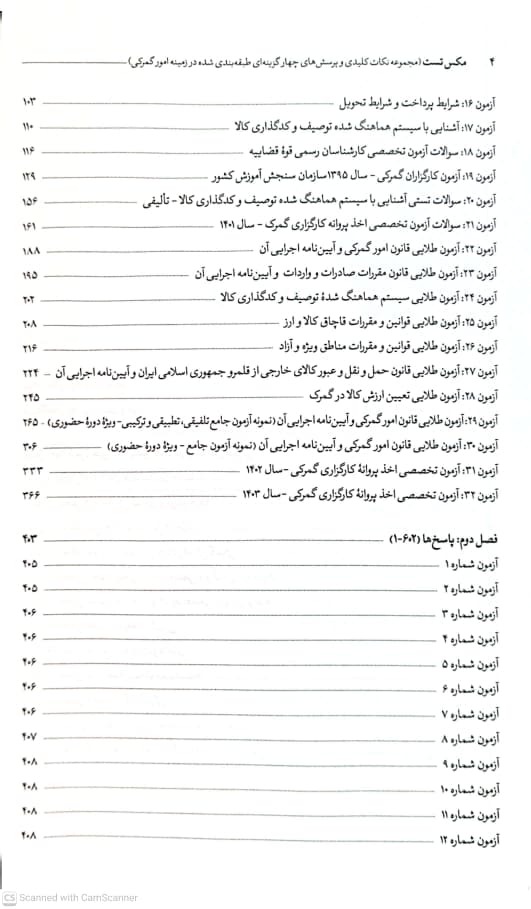 ۴ مکس تست (مجموعه نکات کلیدی و پرسش‌های چهارگزینه‌ای طبقه‌بندی شده در زمینه امور گمرکی)
آزمون ۱۶: شرایط پرداخت و شرایط تحویل ۱۰۳
آزمون ۱۷: آشنایی با سیستم هماهنگ شده توصیف و کدگذاری کالا ۱۱۰
آزمون ۱۸: سوالات آزمون تخصصی کارشناسان رسمی قوۀ قضاییه ۱۱۶
آزمون ۱۹: آزمون کارگزاران گمرکی - سال ۱۳۹۵ سازمان سنجش آموزش کشور ۱۲۹
آزمون ۲۰: سوالات تستی آشنایی با سیستم هماهنگ شده توصیف و کدگذاری کالا - تألیفی ۱۵۶
آزمون ۲۱: سوالات آزمون تخصصی اخذ پروانه کارگزاری گمرک - سال ۱۴۰۱ ۱۶۱
آزمون ۲۲: آزمون طلایی قانون امور گمرکی و آیین‌نامه اجرایی آن ۱۸۸
آزمون ۲۳: آزمون طلایی قانون مقررات صادرات و واردات و آیین‌نامه اجرایی آن ۱۹۵
آزمون ۲۴: آزمون طلایی سیستم هماهنگ شدۀ توصیف و کدگذاری کالا ۲۰۲
آزمون ۲۵: آزمون طلایی قوانین و مقررات قاچاق کالا و ارز ۲۰۸
آزمون ۲۶: آزمون طلایی قوانین و مقررات مناطق ویژه و آزاد ۲۱۶
آزمون ۲۷: آزمون طلایی قانون حمل و نقل و عبور کالای خارجی از قلمرو جمهوری اسلامی ایران و آیین‌نامه اجرایی آن ۲۲۴
آزمون ۲۸: آزمون طلایی تعیین ارزش کالا در گمرک ۲۴۵
آزمون ۲۹: آزمون طلایی قانون امور گمرکی و آیین‌نامه اجرایی آن (نمونه آزمون جامع تلفیقی، تطبیقی و ترکیبی- ویژۀ دورۀ حضوری) ۲۶۵
آزمون ۳۰: آزمون طلایی قانون امور گمرکی و آیین‌نامه اجرایی آن (نمونه آزمون جامع - ویژۀ دورۀ حضوری) ۳۰۶
آزمون ۳۱: آزمون تخصصی اخذ پروانۀ کارگزاری گمرکی -سال ۱۴۰۲ ۳۳۳
آزمون ۳۲: آزمون تخصصی اخذ پروانۀ کارگزاری گمرکی -سال ۱۴۰۳ ۳۶۶
فصل دوم: پاسخ‌ها (۶۰۲-۱) ۴۰۳
آزمون شماره ۱ ۴۰۵
آزمون شماره ۲ ۴۰۵
آزمون شماره ۳ ۴۰۶
آزمون شماره ۴ ۴۰۶
آزمون شماره ۵ ۴۰۶
آزمون شماره ۶ ۴۰۶
آزمون شماره ۷ ۴۰۶
آزمون شماره ۸ ۴۰۷
آزمون شماره ۹ ۴۰۸
آزمون شماره ۱۰ ۴۰۸
آزمون شماره ۱۱ ۴۰۸
آزمون شماره ۱۲ ۴۰۸
CS Scanned with CamScanner